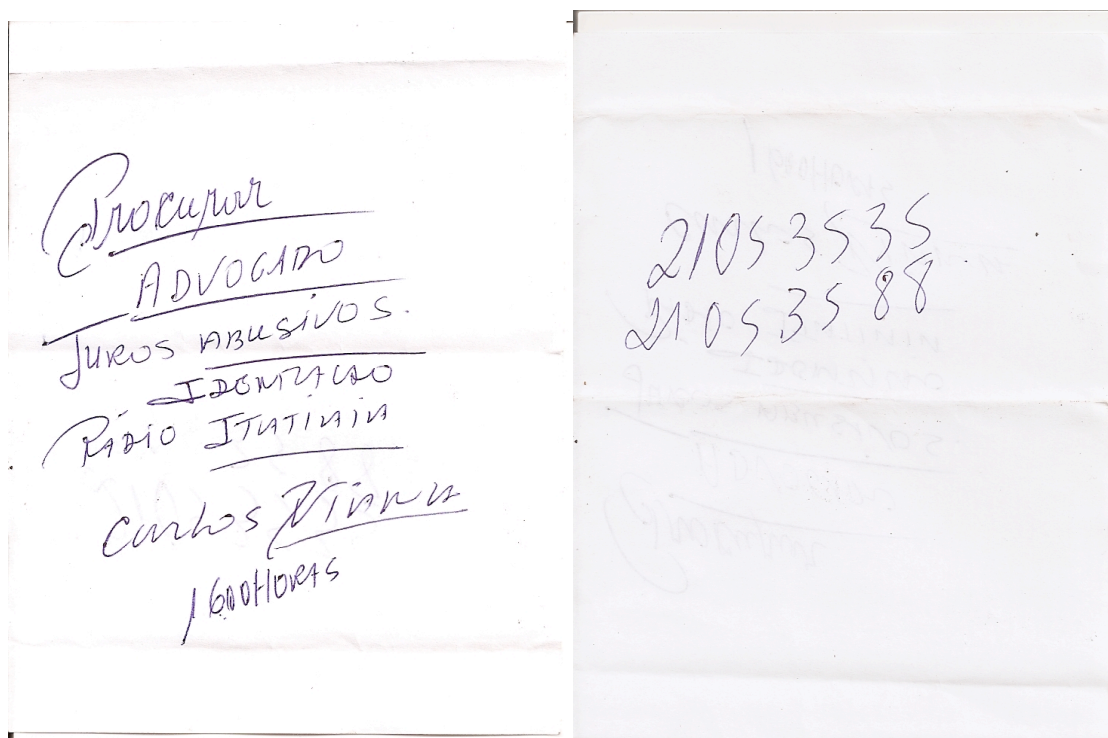 Procurar
ADVOGADO
JUROS ABUSIVOS.
RÁDIO ITATIAIA
Carlos VIANA
1600HORAS
21053535
21053588